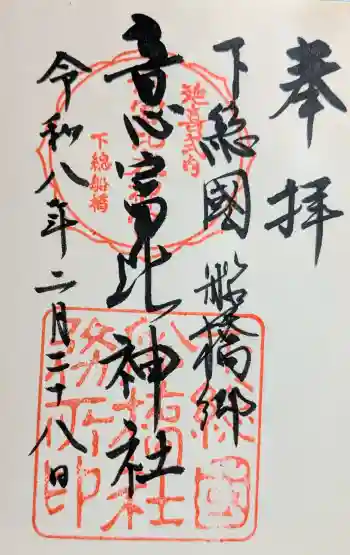 奉拝
下総國船橋郷
意富比神社
令和八年二月二十八日
延喜式内
下總船橋